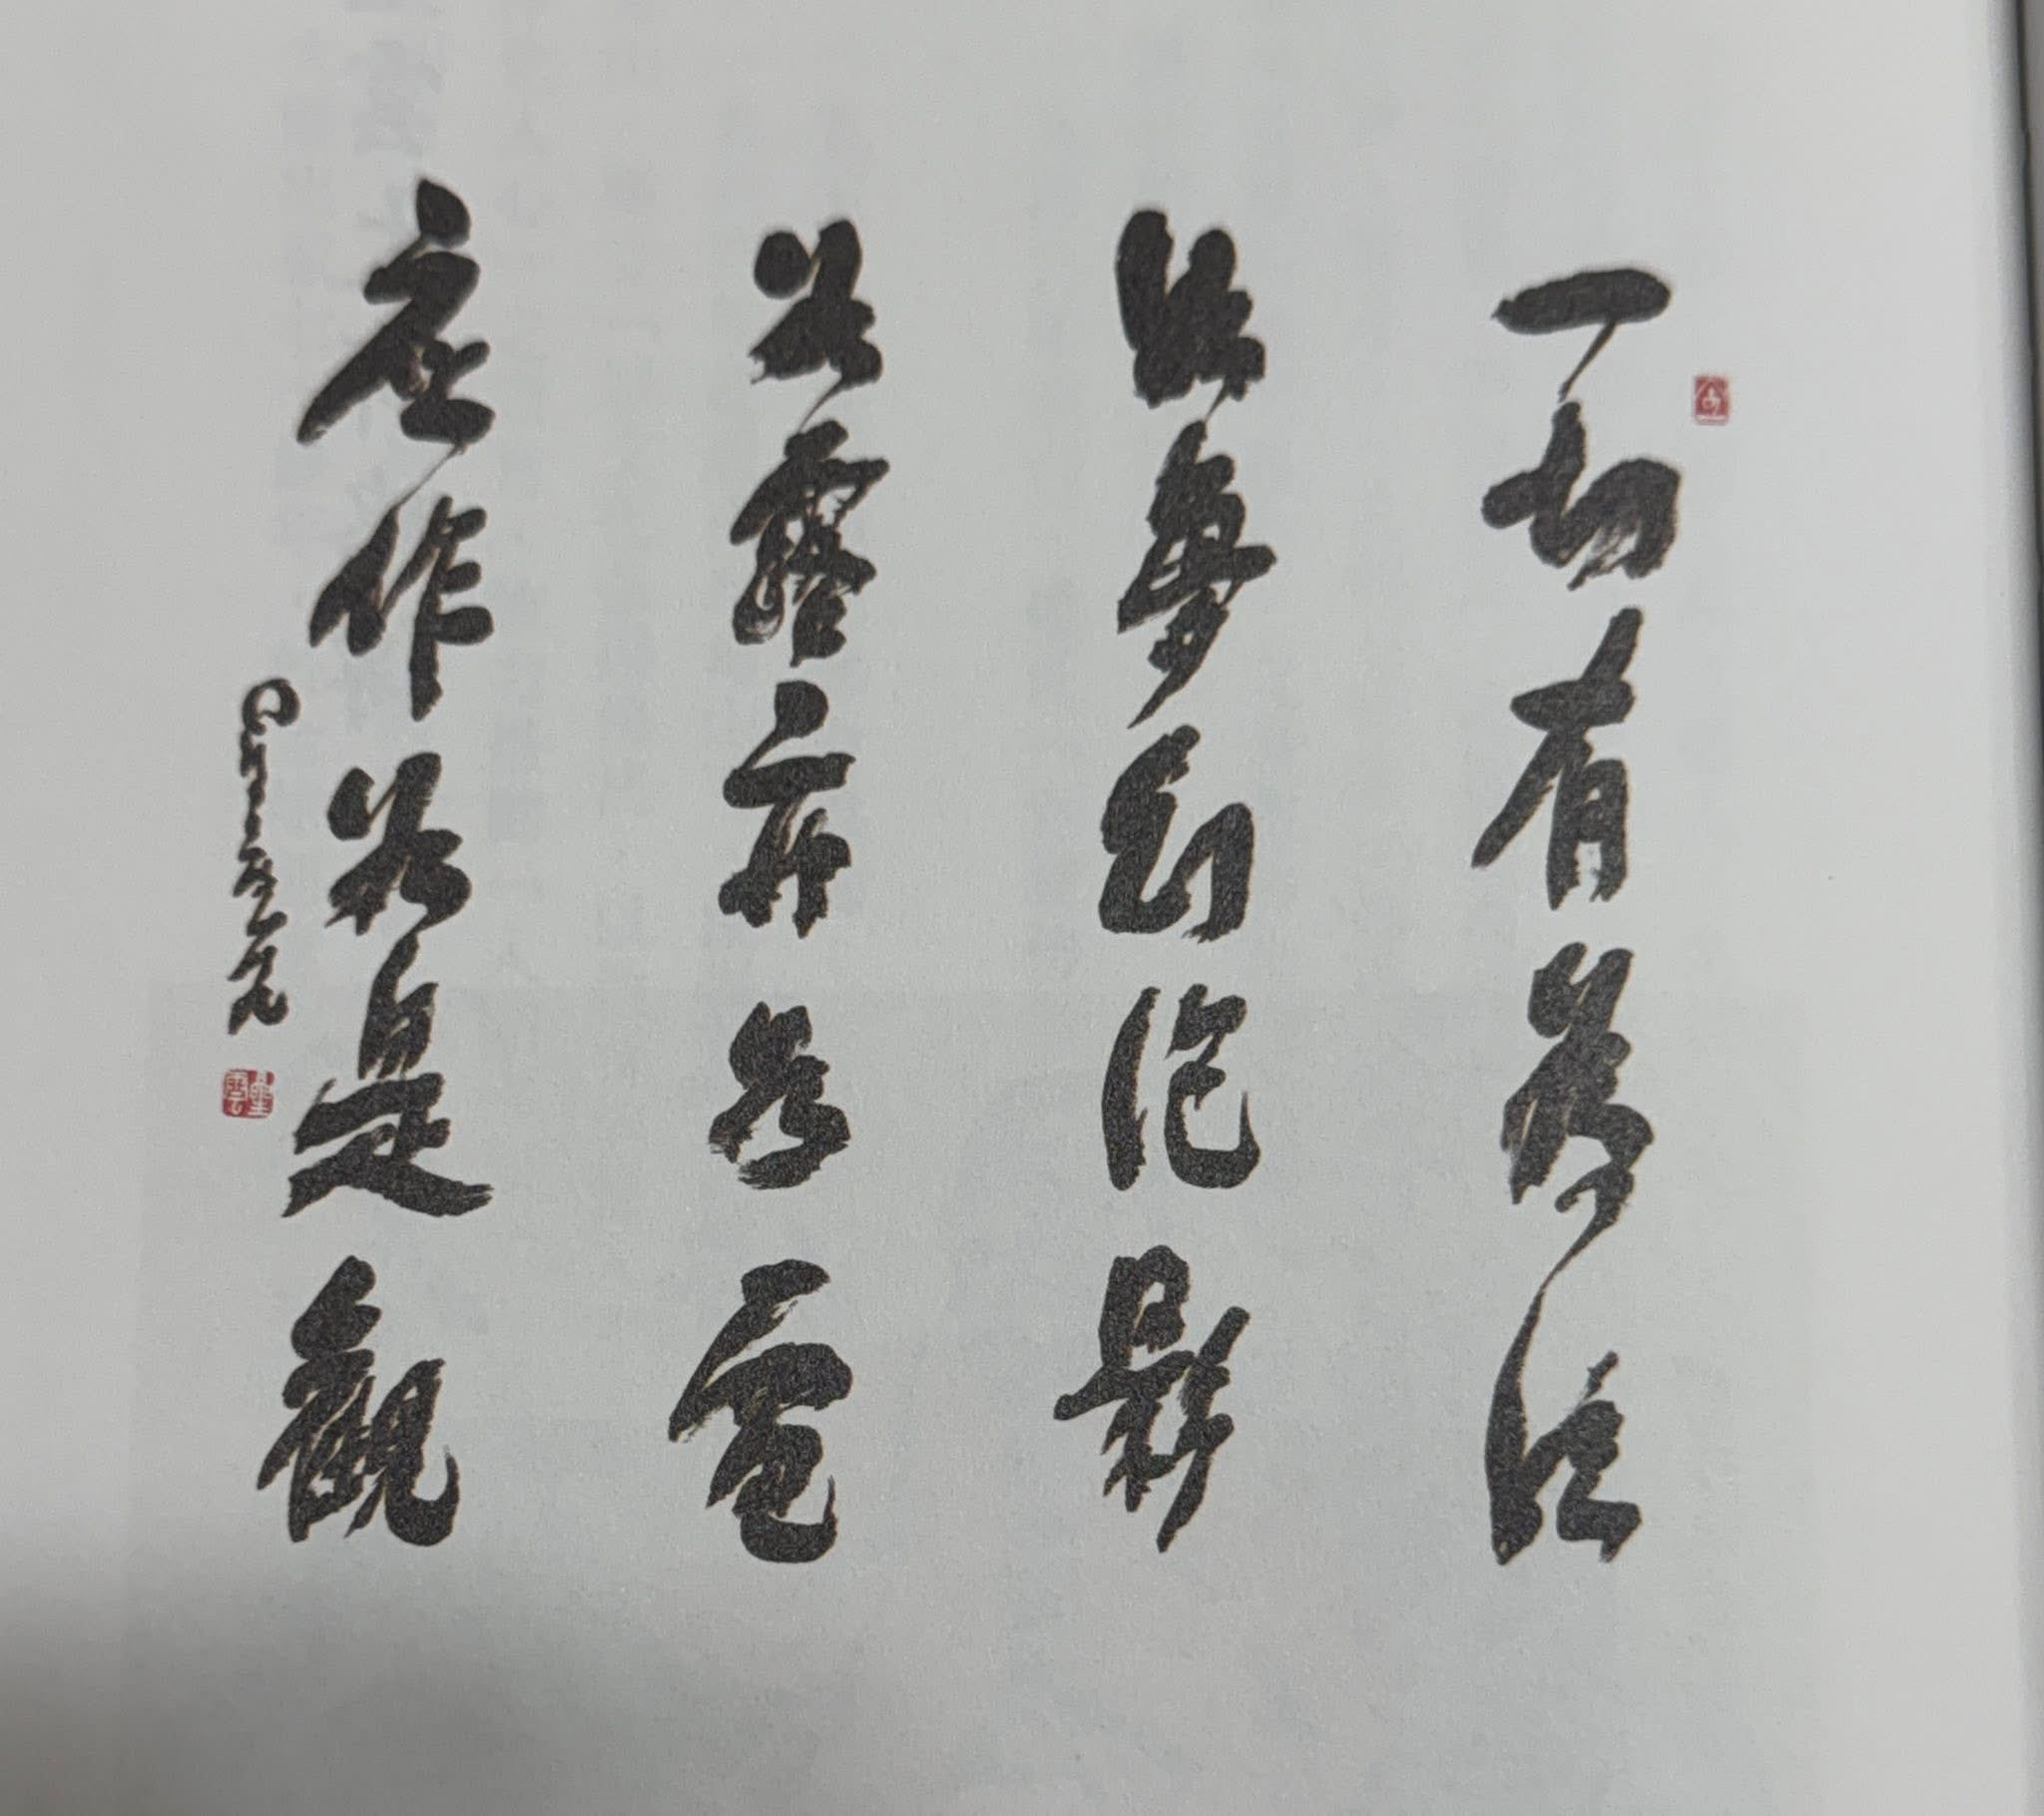 一切有為法
如夢幻泡影
如露亦如電
應作如是觀
星雲